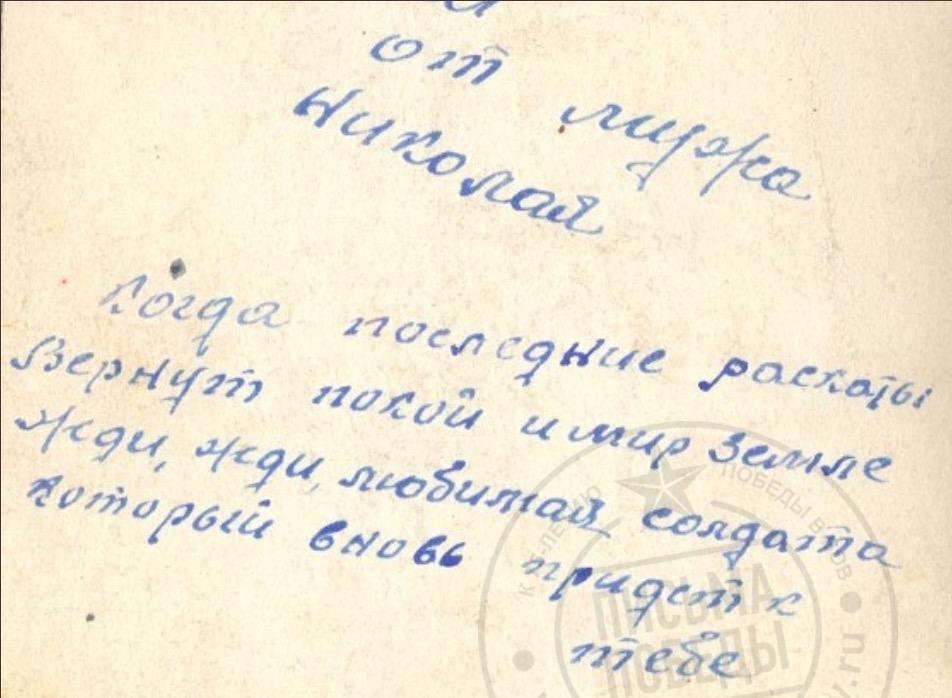 от мужа
Николая
Когда последние раскаты
Вернут покой и мир Земле
Жди, жди, любимая солдата
который вновь придет к
тебе
ПОБЕДЫ
ПИСЬМА
ПОБЕДЫ
.ru